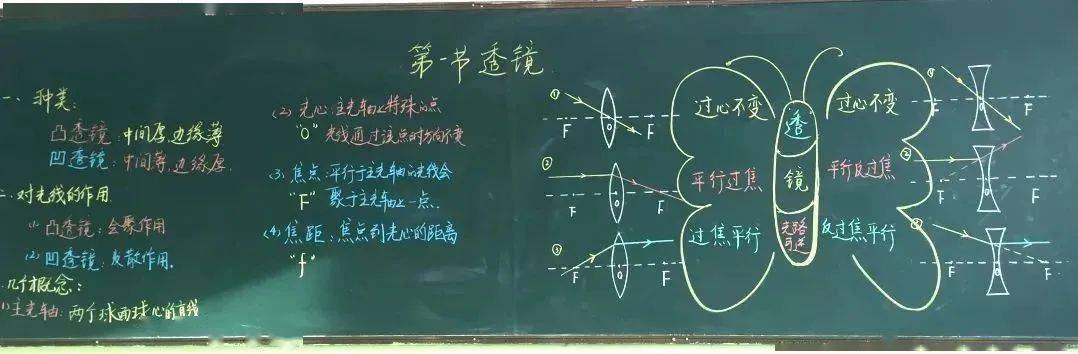 第一节透镜
一、种类:
凸透镜:中间厚,边缘薄
凹透镜:中间薄,边缘厚.
二、对光线的作用
(1)凸透镜:会聚作用
(2)凹透镜:发散作用.
几个概念:
(1)主光轴:两个球面球心的直线
(2)光心:主光轴上特殊的点
"O"光线通过该点时方向不变
(3)焦点:平行于主光轴的光线会
"F"聚于主光轴上一点.
(4)焦距:焦点到光心的距离
"f"
① F O F
② F O F
③ F O F
过心不变
平行过焦
过焦平行
透
镜
光路
可逆
过心不变
平行反过焦
反过焦平行
F O F
② F O F
F O F